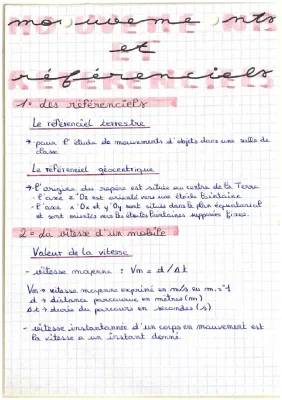 mouvements
et
référentiels
1. des référentiels
Le référentiel terrestre
→ pour l'étude de mouvements d'objets dans une salle de
classe
Le référentiel géocentrique
→ l'origine du repère est située au centre de la Terre
l'axe z'Oz est orienté vers une étoile lointaine
l'axe x'Ox et y'Oy sont situés dans le plan équatorial
et sont orientés vers les étoiles lointaines supposées fixes.
2 = La vitesse d'un mobile
Valeur de la vitesse
- vitesse moyenne : Vm = d/Δt
Vm → vitesse moyenne exprimé en m/s ou m.s-1
d → distance parcourue en mètres (m)
Δt → durée du parcours en secondes (s)
- vitesse instantannée d'un corps en mouvement est
la vitesse a un instant donné.